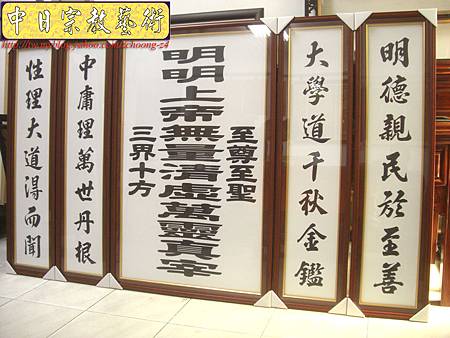 中日宗教藝術
明德親民於至善
大學道千秋金鑑
至尊至聖
明明上帝無量清虛萬靈真宰
三界十方
中庸理萬世丹根
性理大道得而聞